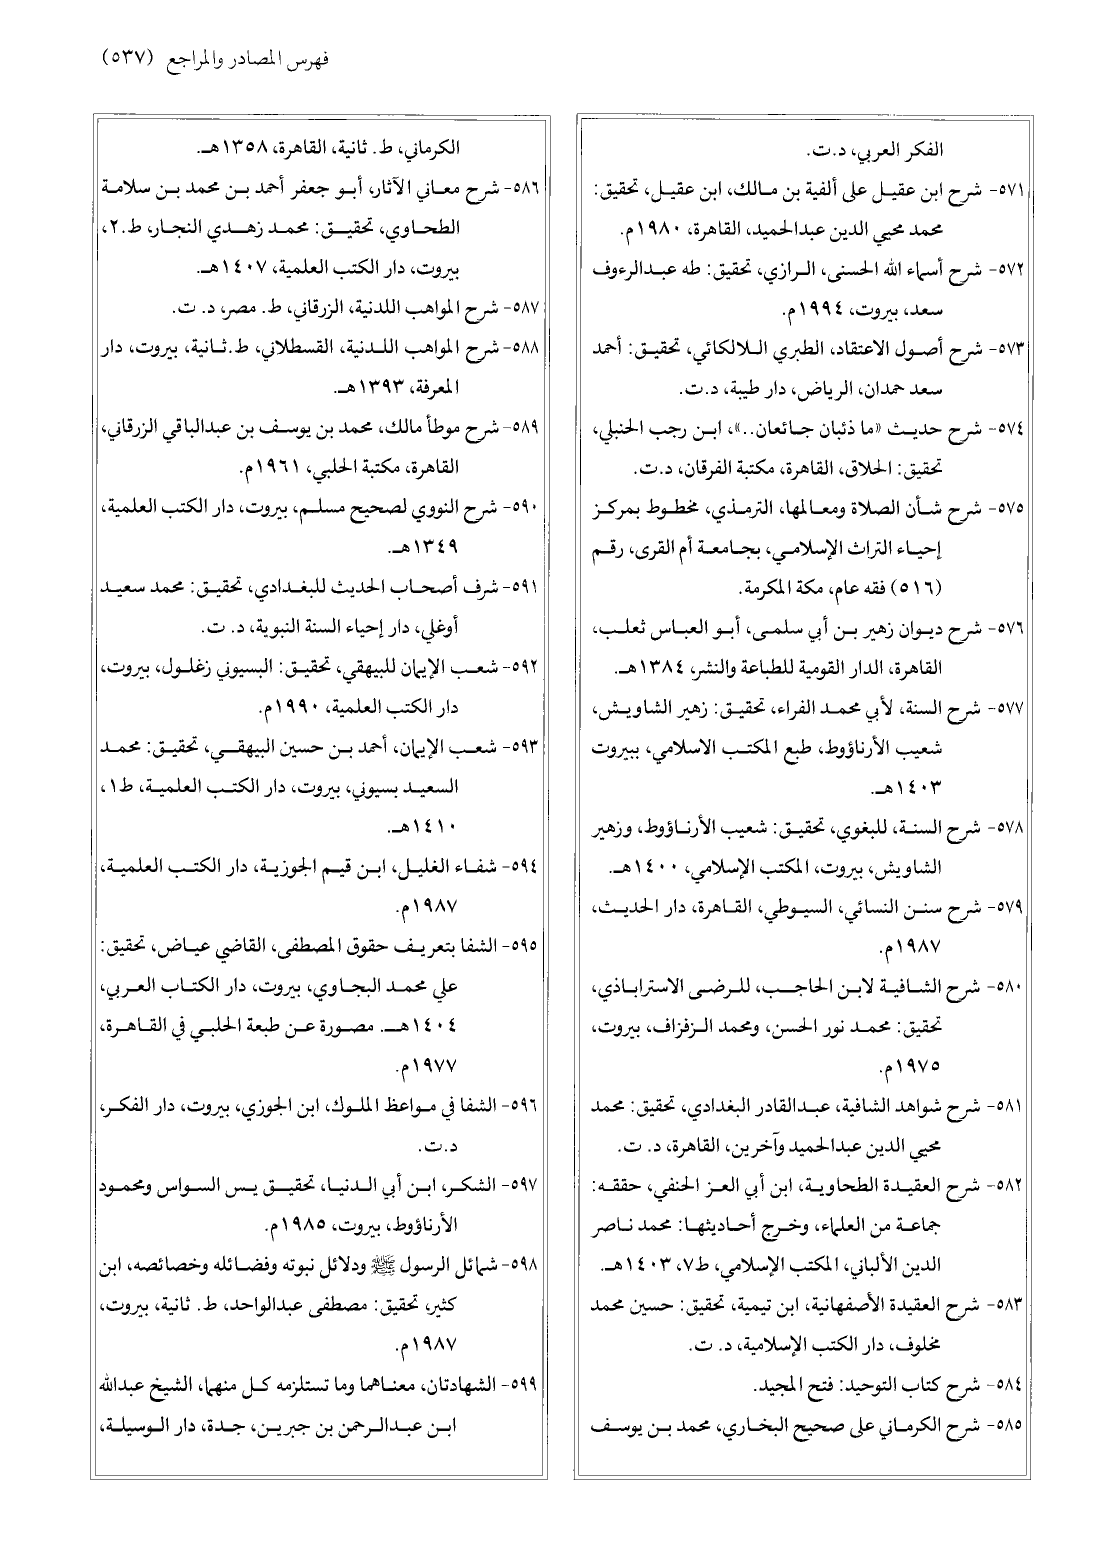 فهرس المصادر والمراجع (٥٣٧)
الفكر العربي، د.ت.
٥٧١- شرح ابن عقيل على ألفية بن مالك، ابن عقيل، تحقيق:
محمد محيي الدين عبدالحميد، القاهرة، ١٩٨٠م.
٥٧٢- شرح أسماء الله الحسنى، الرازي، تحقيق: طه عبدالرءوف
سعد، بيروت، ١٩٩٤م.
٥٧٣- شرح أصول الاعتقاد، الطبري اللالكائي، تحقيق: أحمد
سعد حمدان، الرياض، دار طيبة، د.ت.
٥٧٤- شرح حديث «ما ذئبان جائعان..»، ابن رجب الحنبلي،
تحقيق: الحلاق، القاهرة، مكتبة الفرقان، د.ت.
٥٧٥- شرح شأن الصلاة ومعالمها، الترمذي، مخطوط بمركز
إحياء التراث الإسلامي، بجامعة أم القرى، رقم
(٥١٦) فقه عام، مكة المكرمة.
٥٧٦- شرح ديوان زهير بن أبي سلمى، أبو العباس ثعلب،
القاهرة، الدار القومية للطباعة والنشر، ١٣٨٤هـ.
٥٧٧- شرح السنة، لأبي محمد الفراء، تحقيق: زهير الشاويش،
شعيب الأرناؤوط، طبع المكتب الاسلامي، ببيروت
١٤٠٣هـ.
٥٧٨- شرح السنة، للبغوي، تحقيق: شعيب الأرناؤوط، وزهير
الشاويش، بيروت، المكتب الإسلامي، ١٤٠٠هـ.
٥٧٩- شرح سنن النسائي، السيوطي، القاهرة، دار الحديث،
١٩٨٧م.
٥٨٠- شرح الشافية لابن الحاجب، للرضى الاستراباذي،
تحقيق: محمد نور الحسن، ومحمد الزفزاف، بيروت،
١٩٧٥م.
٥٨١- شرح شواهد الشافية، عبدالقادر البغدادي، تحقيق: محمد
محيي الدين عبدالحميد وآخرين، القاهرة، د. ت.
٥٨٢- شرح العقيدة الطحاوية، ابن أبي العز الحنفي، حققه:
جماعة من العلماء، وخرج أحاديثها: محمد ناصر
الدين الألباني، المكتب الإسلامي، ط٧، ١٤٠٣هـ.
٥٨٣- شرح العقيدة الأصفهانية، ابن تيمية، تحقيق: حسين محمد
مخلوف، دار الكتب الإسلامية، د. ت.
٥٨٤- شرح كتاب التوحيد: فتح المجيد.
٥٨٥- شرح الكرماني على صحيح البخاري، محمد بن يوسف
الكرماني، ط. ثانية، القاهرة، ١٣٥٨هـ.
٥٨٦- شرح معاني الآثار، أبو جعفر أحمد بن محمد بن سلامة
الطحاوي، تحقيق: محمد زهدي النجار، ط.٢،
بيروت، دار الكتب العلمية، ١٤٠٧هـ.
٥٨٧- شرح المواهب اللدنية، الزرقاني، ط. مصر، د. ت.
٥٨٨- شرح المواهب اللدنية، القسطلاني، ط.ثانية، بيروت، دار
المعرفة، ١٣٩٣هـ.
٥٨٩- شرح موطأ مالك، محمد بن يوسف بن عبدالباقي الزرقاني،
القاهرة، مكتبة الحلبي، ١٩٦١م.
٥٩٠- شرح النووي لصحيح مسلم، بيروت، دار الكتب العلمية،
١٣٤٩هـ.
٥٩١- شرف أصحاب الحديث للبغدادي، تحقيق: محمد سعيد
أوغلي، دار إحياء السنة النبوية، د. ت.
٥٩٢- شعب الإيمان للبيهقي، تحقيق: البسيوني زغلول، بيروت،
دار الكتب العلمية، ١٩٩٠م.
٥٩٣- شعب الإيمان، أحمد بن حسين البيهقي، تحقيق: محمد
السعيد بسيوني، بيروت، دار الكتب العلمية، ط١،
١٤١٠هـ.
٥٩٤- شفاء الغليل، ابن قيم الجوزية، دار الكتب العلمية،
١٩٨٧م.
٥٩٥- الشفا بتعريف حقوق المصطفى، القاضي عياض، تحقيق:
علي محمد البجاوي، بيروت، دار الكتاب العربي،
١٤٠٤هـ. مصورة عن طبعة الحلبي في القاهرة،
١٩٧٧م.
٥٩٦- الشفا في مواعظ الملوك، ابن الجوزي، بيروت، دار الفكر،
د.ت.
٥٩٧- الشكر، ابن أبي الدنيا، تحقيق يس السواس ومحمود
الأرناؤوط، بيروت، ١٩٨٥م.
٥٩٨- شمائل الرسول ﷺ ودلائل نبوته وفضائله وخصائصه، ابن
كثير، تحقيق: مصطفى عبدالواحد، ط. ثانية، بيروت،
١٩٨٧م.
٥٩٩- الشهادتان، معناهما وما تستلزمه كل منهما، الشيخ عبدالله
ابن عبدالرحمن بن جبرين، جدة، دار الوسيلة،